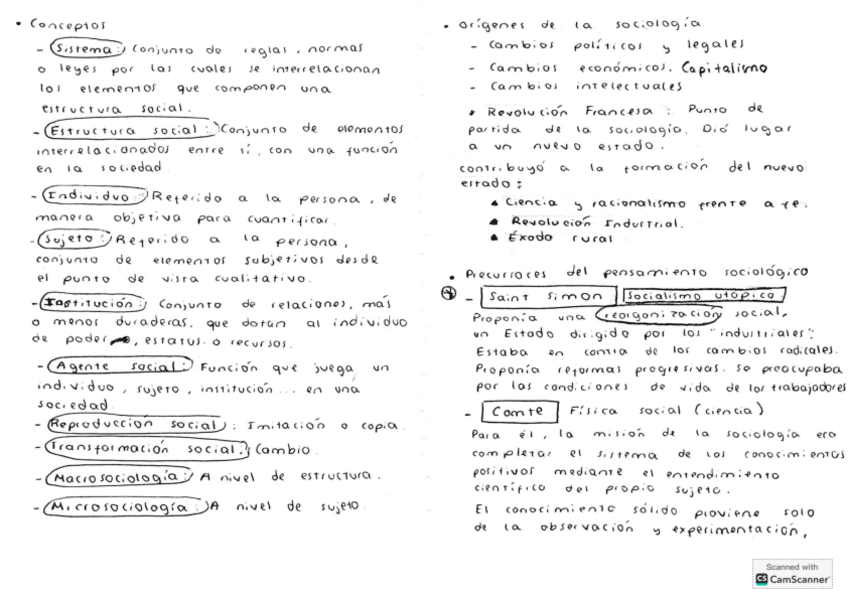 • Conceptos
- Sistema: Conjunto de reglas, normas
o leyes por las cuales se interrelacionan
los elementos que componen una
estructura social.
- Estructura social: Conjunto de elementos
interrelacionados entre sí, con una función
en la sociedad
- Individuo: Referido a la persona, de
manera objetiva para cuantificar.
- Sujeto: Referido a la persona,
conjunto de elementos subjetivos desde
el punto de vista cualitativo.
- Institución: Conjunto de relaciones, más
o menos duraderas, que dotan al individuo
de poder, estatus o recursos.
- Agente social: Función que juega un
individuo, sujeto, institución... en una
sociedad
- Reproducción social: Imitación o copia.
- Transformación social: Cambio.
- Macrosociología: A nivel de estructura.
- Microsociología: A nivel de sujeto.
• Orígenes de la sociología
- Cambios políticos y legales
- Cambios económicos. Capitalismo
- Cambios intelectuales
• Revolución Francesa: Punto de
partida de la sociología. Dió lugar
a un nuevo estado.
contribuyó a la formación del nuevo
estado:
▲ Ciencia y racionalismo frente a fe.
▲ Revolución Industrial.
▲ Éxodo rural
• Precursores del pensamiento sociológico
- Saint Simon Socialismo utópico
Proponía una reorganización social,
un Estado dirigido por los "industriales":
Estaba en contra de los cambios radicales.
Proponía reformas progresivas. Se preocupaba
por las condiciones de vida de los trabajadores
- Comte Física social (ciencia)
Para él, la misión de la sociología era
completar el sistema de los conocimientos
positivos mediante el entendimiento
científico del propio sujeto.
El conocimiento sólido proviene solo
de la observación y experimentación,
Scanned with
CS CamScanner